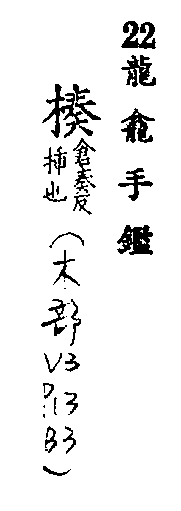 22龍龕手鑑
楱倉奏反
插也
(木部V3
P.13
B3)